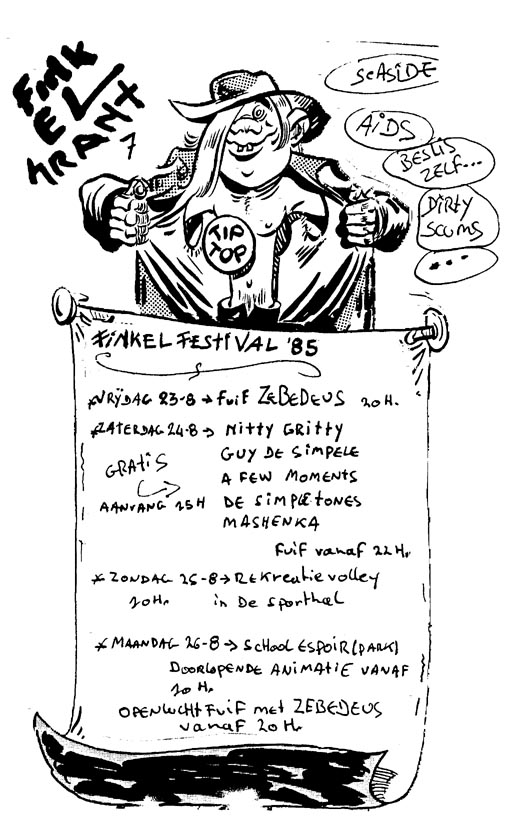 FINK
EL
KRANT
7
SEASIDE
AIDS
BESLIS
ZELF...
DIRTY
SCUMS
...
TIP
TOP
FINKELFESTIVAL '85
*VRŸDAG 23-8 → FUIF ZEBEDEUS 20H.
*ZATERDAG 24-8 → NITTY GRITTY
GUY DE SIMPELE
GRATIS
A FEW MOMENTS
AANVANG 15H DE SIMPLETONES
MASHENKA
FUIF VANAF 22H.
* ZONDAG 25-8 → REKREATIEVOLLEY
10H. in De sporthal
* MAANDAG 26-8 → SCHOOL ESPOIR (PARK)
DOORLOPENDE ANIMATIE VANAF
10H.
OPENLUCHTFUIF met ZEBEDEUS
vanaf 20H.